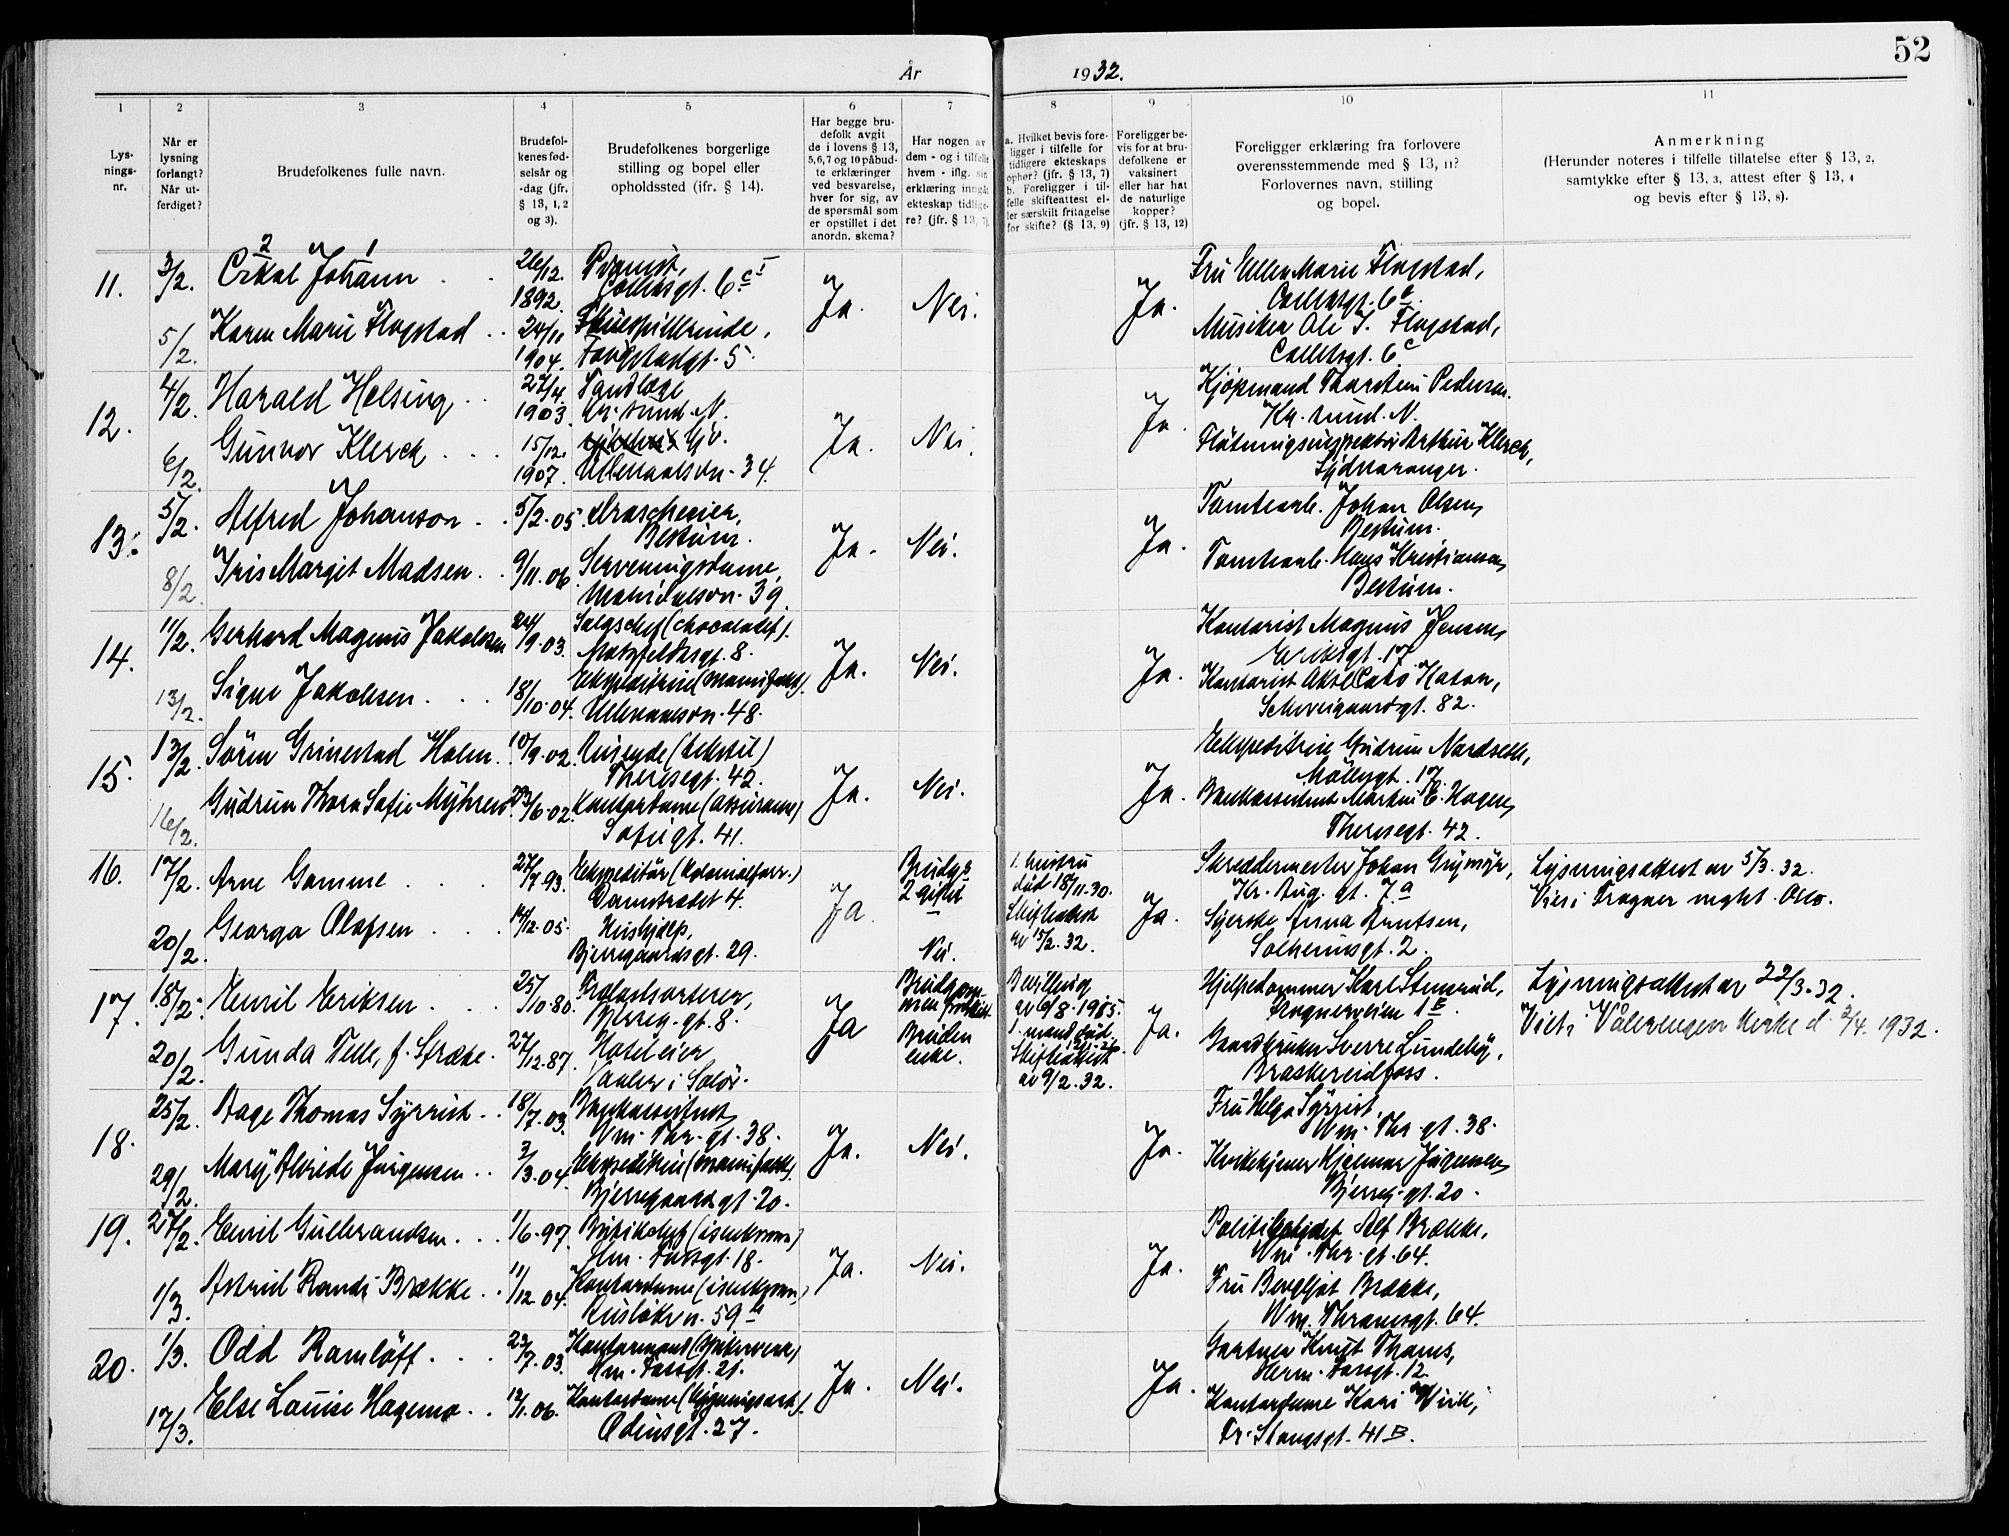 52
År 1932.
1 2 3 4 5 6 7 8 9 10 11
Lysnings-nr.
Når er lysning forlangt? Når utferdiget?
Brudefolkenes fulle navn.
Brudefolkenes fødselsår og -dag (jfr. § 13, 1, 2 og 3).
Brudefolkenes borgerlige stilling og bopel eller opholdssted (jfr. § 14).
Har begge brudefolk avgit de i lovens § 13, 5,6,7 og 10 påbudte erklæringer ved besvarelse, hver for sig, av de spørsmål som er opstillet i det anordn. skema?
Har nogen av dem - og i tilfelle hvem - iflg. sin erklæring inngåt ekteskap tidligere? (jfr. § 13, 7).
a. Hvilket bevis foreligger i tilfelle for tidligere ekteskaps ophør? (jfr. § 13, 7)
b. Foreligger i tilfelle skifteattest eller særskilt fritagelse for skifte? (§ 13, 9)
Foreligger bevis for at brudefolkene er vaksinert eller har hat de naturlige kopper? (jfr. § 13, 12)
Foreligger erklæring fra forlovere overensstemmende med § 13, 11? Forlovernes navn, stilling og bopel.
Anmerkning
(Herunder noteres i tilfelle tillatelse efter § 13, 2,
samtykke efter § 13, 3, attest efter § 13, 4
og bevis efter § 13, 8).
11. 3/2. Johann 26/12. 1892. 6c Ja. Nei. Ja. Fru Ellen Marie Flagstad,
6c.
5/2. Karen Marie Flagstad 24/11 1904. Skuespillerinde, 5. Musiker Ole Flagstad,
6c
12. 4/2. Harald Helsing 27/4. 1903. Tandlæge Kr. sund. N. Ja. Nei. Ja. Kjøpmand Thorstein Pedersen.
Kr. sund. N.
6/2. Gunvor Klerck 15/12. 1907. Ullevaalsvn. 34. Arthur Klerck,
Sydvaranger.
13. 5/2. Alfred Johanson 5/2.05. Bestum. Ja. Nei. Ja. Johan Olsen,
Bestum.
8/2. Iris Margit Madsen 9/11.06. Serveringsdame, Maridalsvn. 39. Hans Kristiansen,
Bestum.
14. 11/2. Gerhard Magnus Jakobsen 24/9.03. Salgschef (chocoladef). 8. Ja. Nei. Ja. Kontorist Magnus Jensen,
Eriksgt. 17.
13/2. Signe Jakobsen 18/10.04. Ullevaalsvn. 48. Kontorist
Schweigaardsgt. 82.
15. 13/2. Søren Grinestad Holm 10/9.02. Reisende (tekstil) Theresegt. 42. Ja. Nei. Ja. Ekspeditrice Gudrun
Møllergt. 17.
16/2. Gudrun Thora Sofie Myhren 23/6.02. Kontordame (assurance) Sofiegt. 41. Bankassistent Martin E. Hagen,
Theresegt. 42.
16. 17/2. Arne Gamme 27/7.93. Ekspeditør (kolonialforr.) Damstredet 4. Ja. Brudgs. 2 gifte 1. hustru død 18/11.30. Skifteattest av 15/2.32. Ja. Skreddermester Johan
Kr. Aug. gt. 7a
20/2. Georga Olafsen 14/12.05. Hushjelp, Bjerregaardsgt. 29. Nei. Syerske Anna Arntsen,
Solheimsgt. 2.
Lysningsattest av 5/3.32.
Viet i Frogner mgkt. Oslo.
17. 18/2. Emil Eriksen 25/10.80. Bjerreg. gt. 8. Ja Brudgommen fraskilt Bevilling av 6/8.1925. Ja. Karl Stensrud,
Frognerveien 1E.
20/2. Gunda Telle, f. 27/12.87. Hoteleier i Solør. Bruden enke. 1. mand død Skifteattest av 9/2.32. Gaardbruker Sverre Lundeby,
Braskereidfoss.
Lysningsattest av 22/3.32.
Viet i Vålerengen kirke d. 2/4. 1932.
18. 25/2. Aage Thomas Syrrist 18/7.03. Bankassistent Wm. Thr. gt. 38. Ja. Nei. Ja. Fru Helga Syrrist,
Wm. Thr. gt. 38.
29/2. Mary Alvide Jørgensen 3/3.04. Bjerregaards gt. 20. Hjalmar Jørgensen,
Bjerreg. gt. 20.
19. 27/2. Emil Gulbrandsen 1/6.97. Hm. Fossgt. 18. Ja. Nei. Ja. Alf Brække,
Wm. Thr. gt. 64.
1/3. Astrid Randi Brække 11/12.04. Kontordame 59 Fru Bergljot Brække,
Wm. Thranesgt. 64.
20. 1/3. Odd Ramløff 29/7.03. Hm. Fossgt. 21. Ja. Nei. Ja. Gartner Knut Thams,
Herm. Fossgt. 12.
17/3. Else Louise Hagemo 12/1.06. Kontordame Odinsgt. 27. Kontordame Kari
Fr. Stangsgt. 41B.